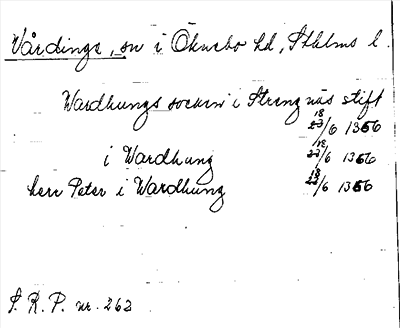 Vårdinge, sn i Öknebo hd, Sthlms l.
Wardhungs sockin i Strengnäs stift
18/6 1356
i Wardhung 18/6 1356
herr Peter i Wardhung 18/6 1356
S. R. P. nr. 262